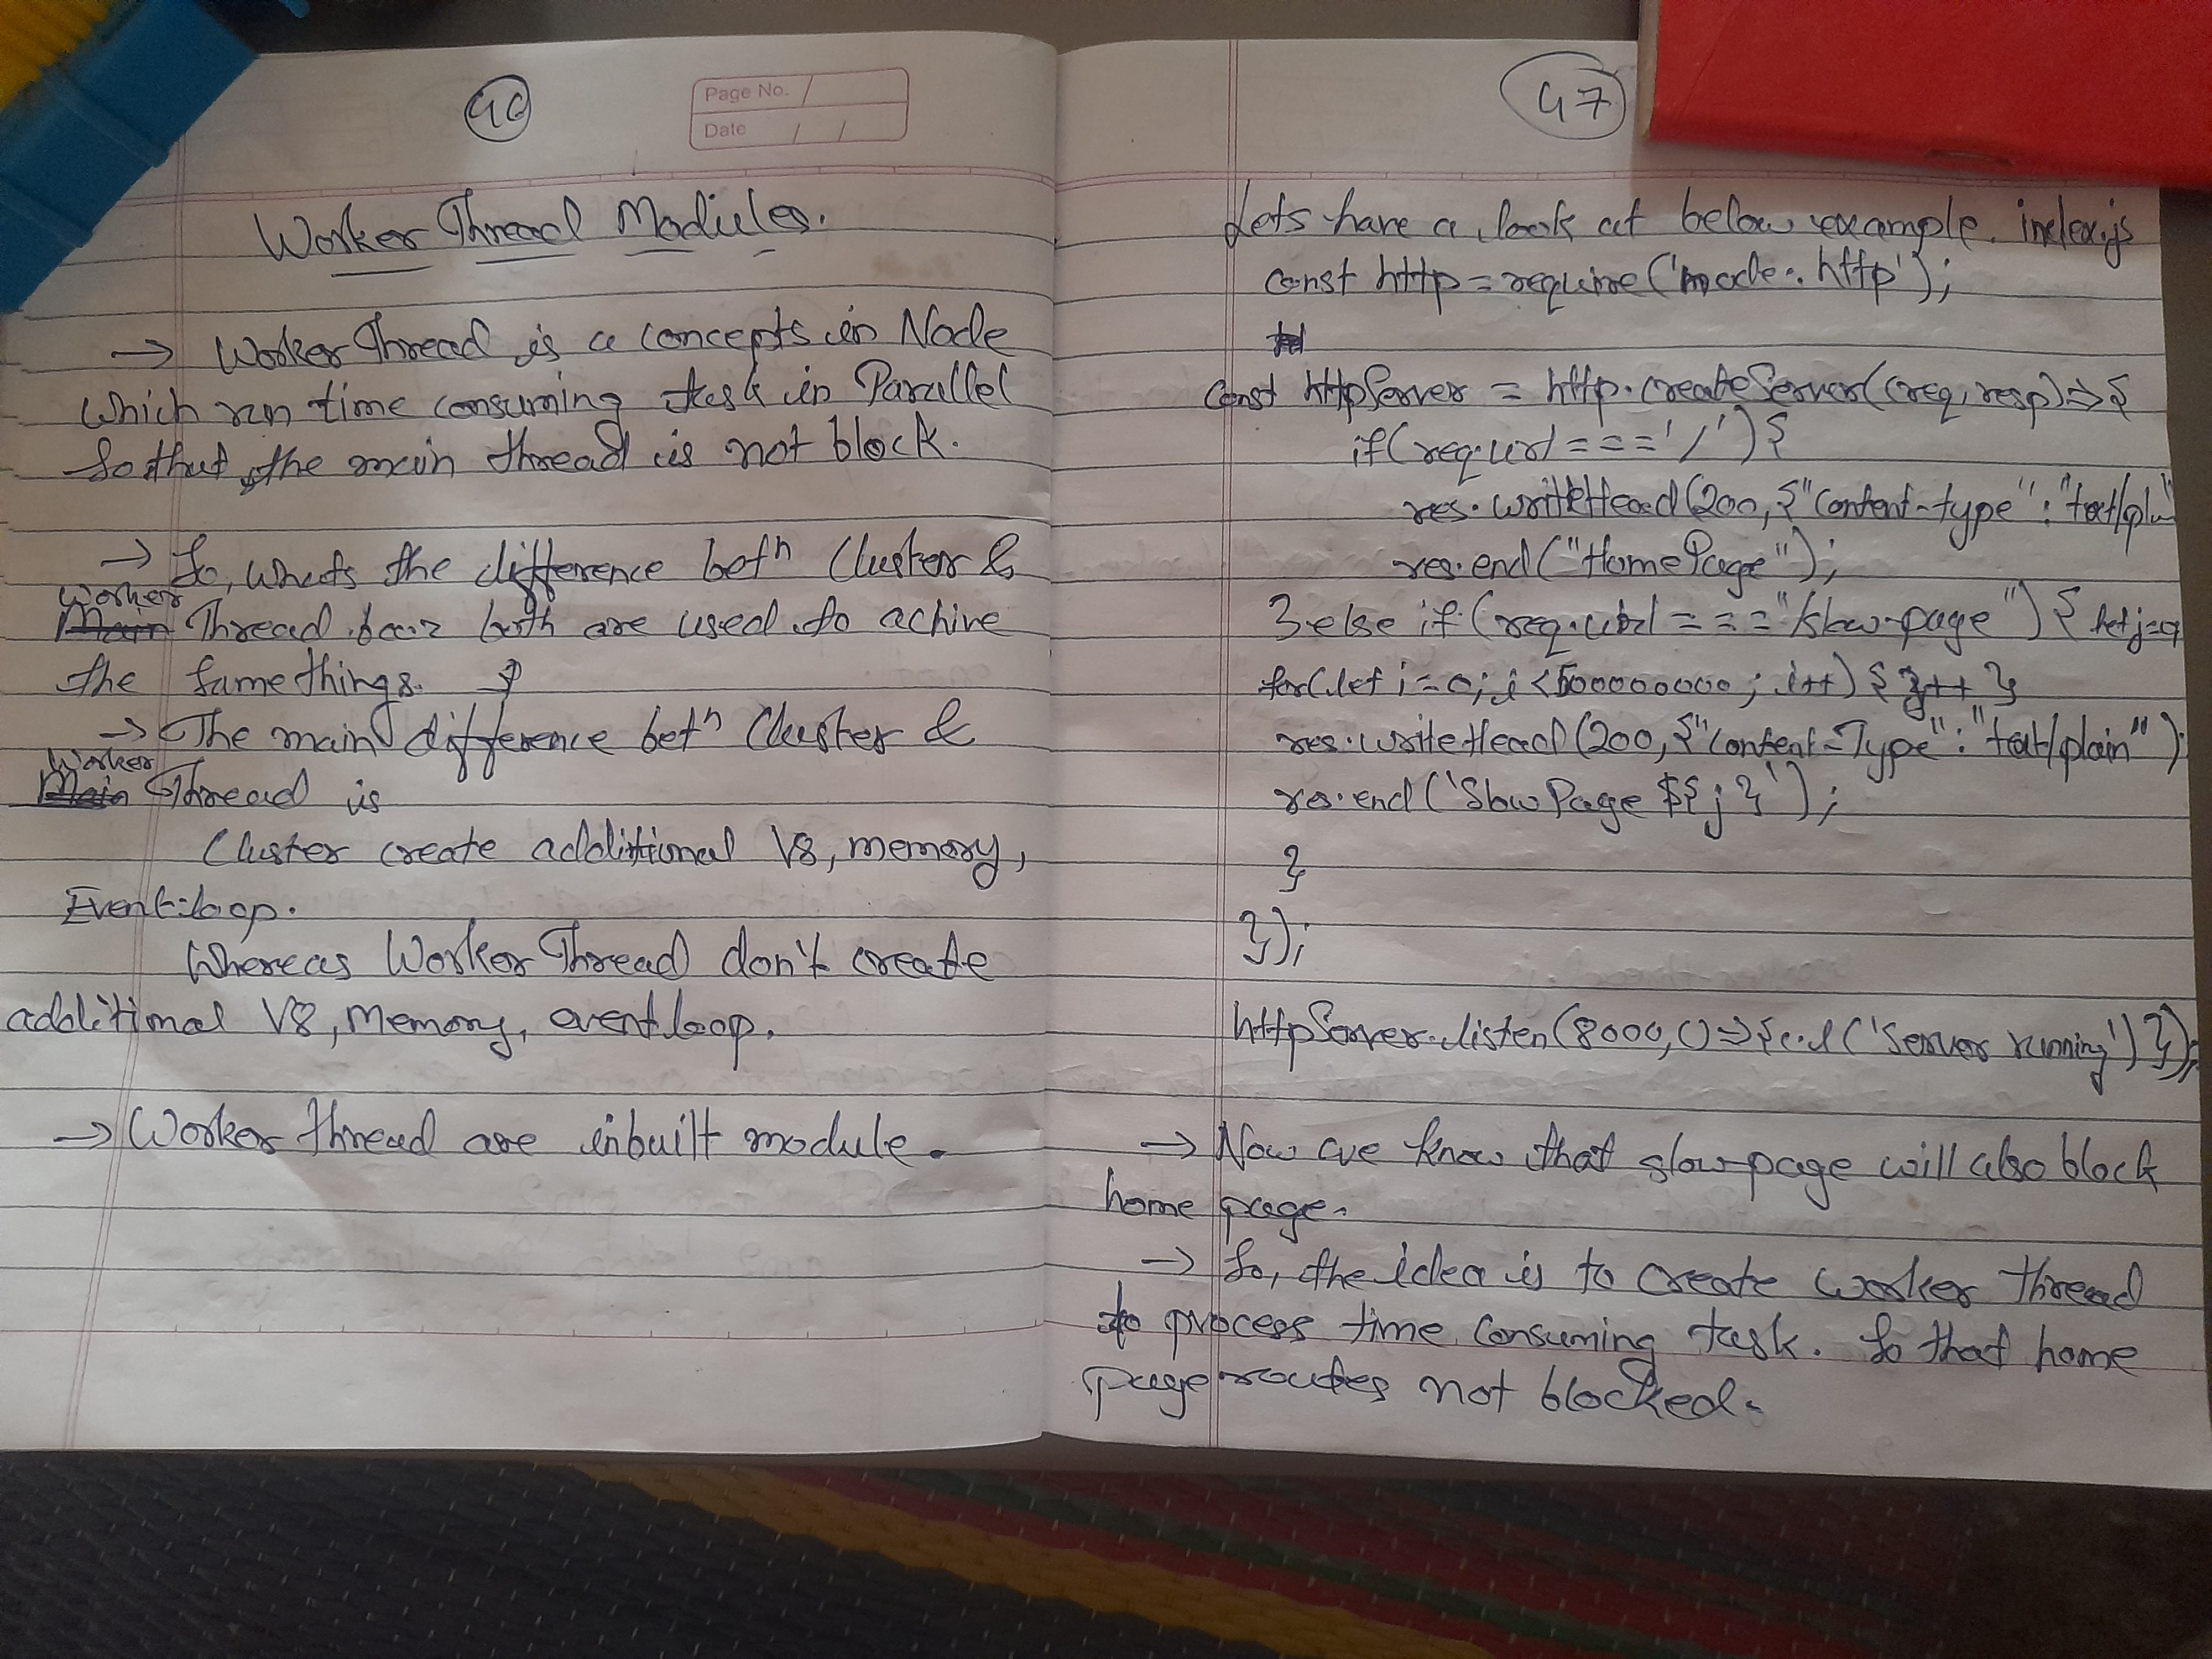 Page No. /
Date / /
Worker Thread Modules.
→ Worker Thread is a concepts in Node
which run time consuming task in Parallel
So that the main thread is not block.
→ So, whats the difference betⁿ Cluster &
Worker
Main Thread both are used to achive
the same things.
→ The main difference betⁿ Cluster &
Worker
Main Thread is
Cluster create additional V8, memory,
Event loop.
Whereas Worker Thread don't create
additional V8, memory, event loop.
→ Worker thread are inbuilt module.
47
Lets have a look at below example. index.js
const http = require('node:http');
const httpServer = http.createServer((req, resp) => {
if(req.url === '/') {
res.writeHead(200, {"Content-type" : "text/pla"
res.end("HomePage");
}else if (req.url === "/slow-page") { let j=
for(let i=0; i<5000000000; i++) { j++ }
res.writeHead(200, {"content-Type" : "text/plain")
res.end('Slow Page ${j}');
}
});
httpServer.listen(8000, () => {c.l('Server running')});
→ Now we know that slow-page will also block
home page.
→ So, the idea is to create worker thread
to process time consuming task. So that home
page routes not blocked.